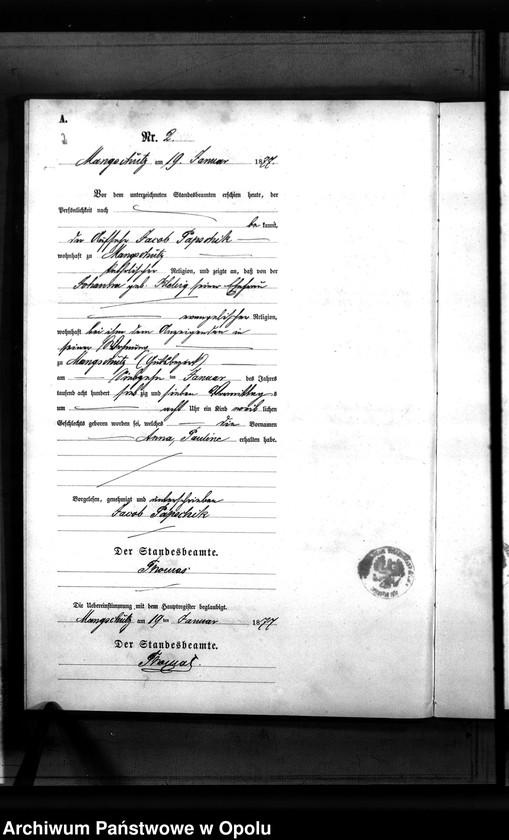 A.
2
Nr. 2.
Mangschütz am 19 Januar 1877.
Vor dem unterzeichneten Standesbeamten erschien heute, der
Persönlichkeit nach
be kannt,
der Jacob Papschik
wohnhaft zu Mangschütz
katholischer Religion, und zeigte an, daß von der
Johanna geb. seiner Ehefrau
evangelischer Religion,
wohnhaft bei ihm dem Anzeigenden in
seiner Wohnung
zu Mangschütz (Gutsbezirk)
am Januar des Jahres
tausend acht hundert sieb zig und sieben Vormittag s
um acht Uhr ein Kind weib lichen
Geschlechts geboren worden sei, welches die Vornamen
Anna, Pauline erhalten habe.
Vorgelesen, genehmigt und unterschrieben
Jacob Papschik
Der Standesbeamte.
Thomas
Die Uebereinstimmung mit dem Hauptregister beglaubigt.
Mangschütz am 19ten Januar 1877.
Der Standesbeamte.
Thomas.
Archiwum Państwowe w Opolu